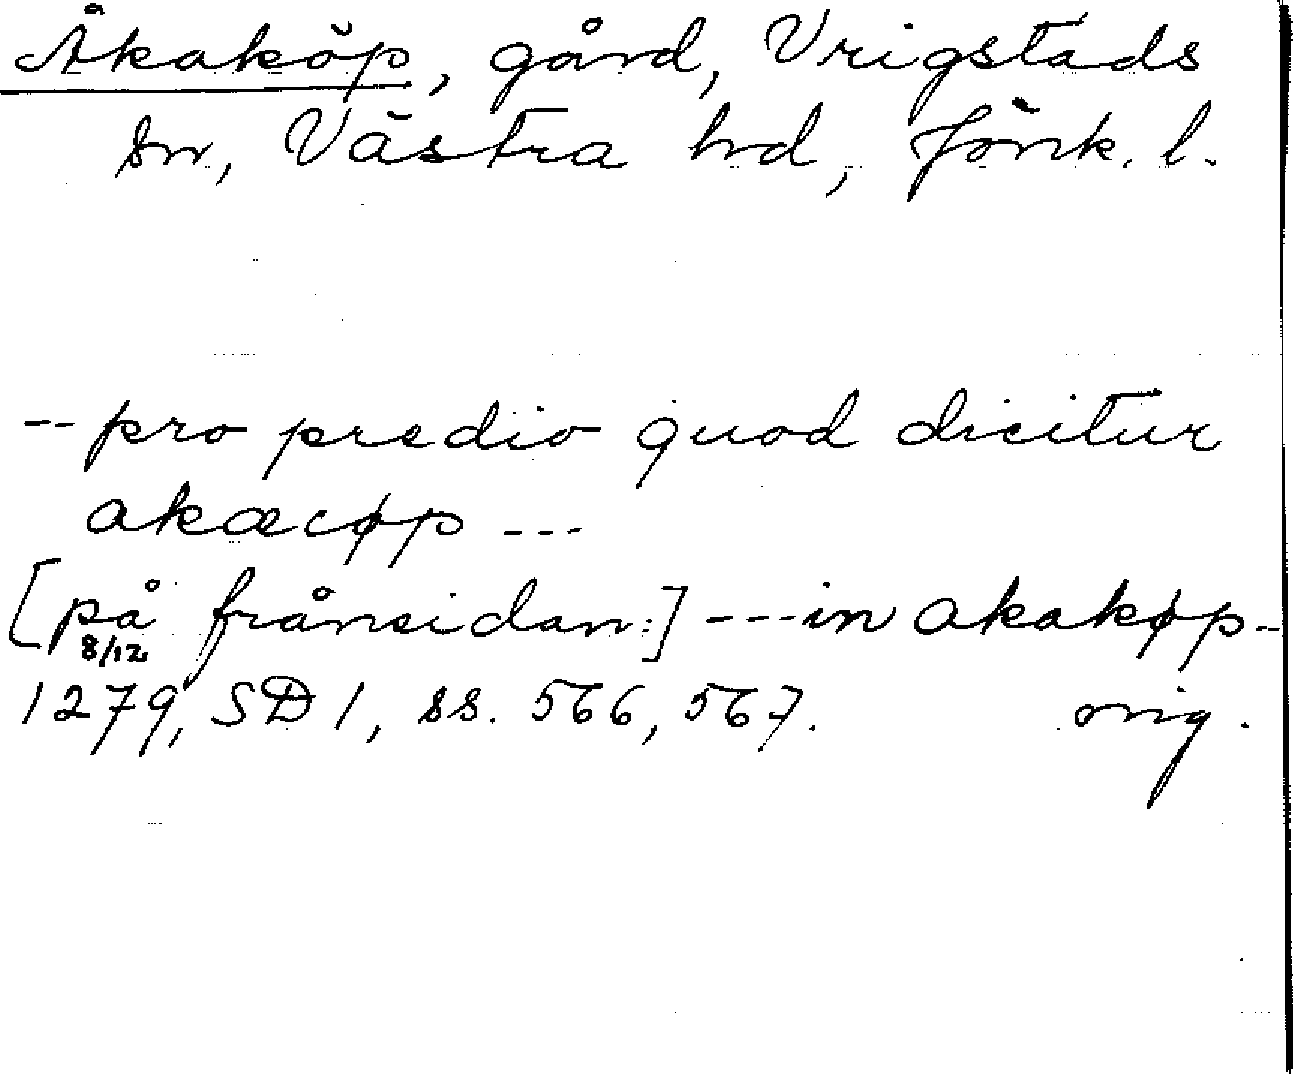 Åkaköp, gård, Vrigstads
sn, Västra hd, Jönk. l.
-- pro predio quod dicitur
akæcøp ---
[på frånsidan:] --- in akakøp --
8/12
1279, SD 1, ss. 566, 567. orig.